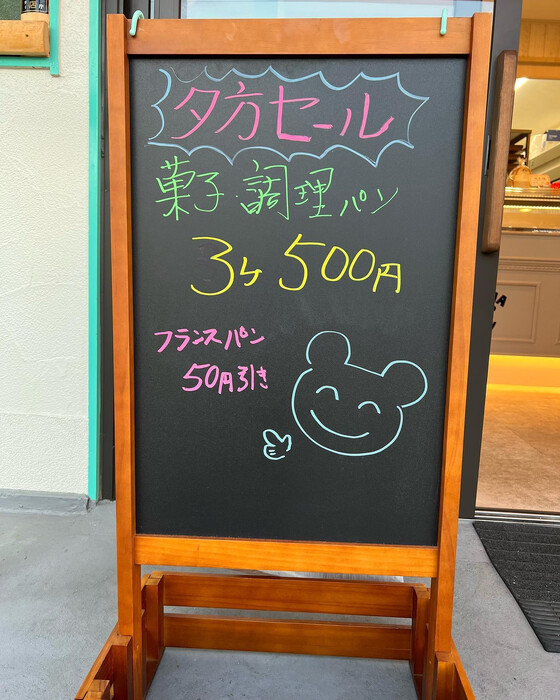 夕方セール
菓子 調理パン
3ヶ 500円
フランスパン
50円引き